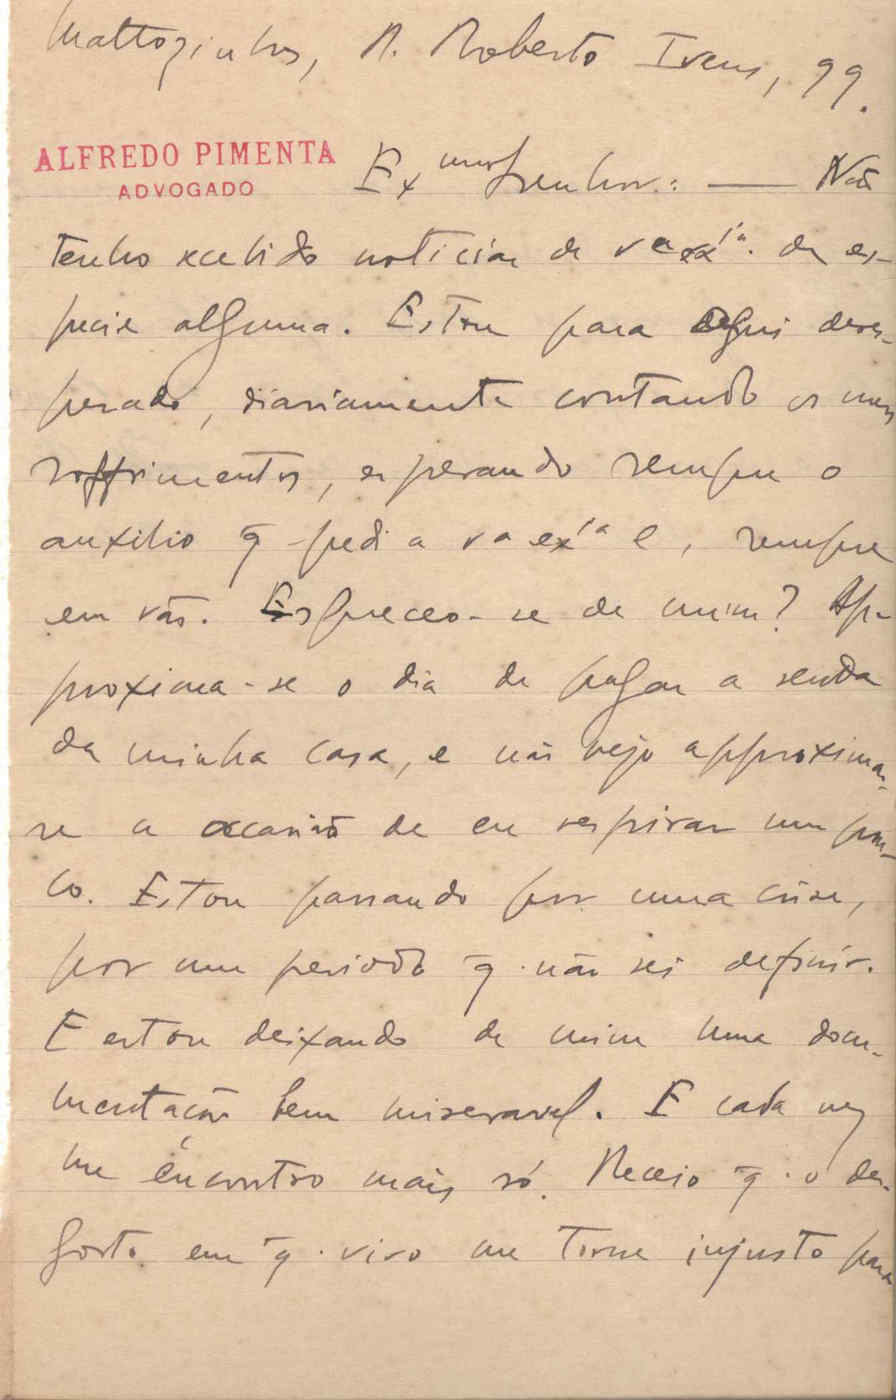 Mattozinhos, R. Roberto Ivens, 99.
ALFREDO PIMENTA
ADVOGADO
Ex.mo Senhor: — Não
tenho recebido noticias de va exª. de es-
pecie alguma. Estou para aqui deses-
perado, diariamente contando os meus
soffrimentos, esperando sempre o
auxilio q̄ pedi a va exª e, sempre
em vão. Esqueceo-se de mim? Ap-
proxima-se o dia de pagar a renda
da minha casa, e não vejo approximar-
se a occasião de eu respirar um pou-
co. Estou passando por uma crise,
por um periodo q̄. não sei definir.
E estou deixando de mim uma docu-
mentação bem miseravel. E cada vez
me encontro mais só. Receio q̄. o des-
gosto em q̄. vivo me torne injusto para